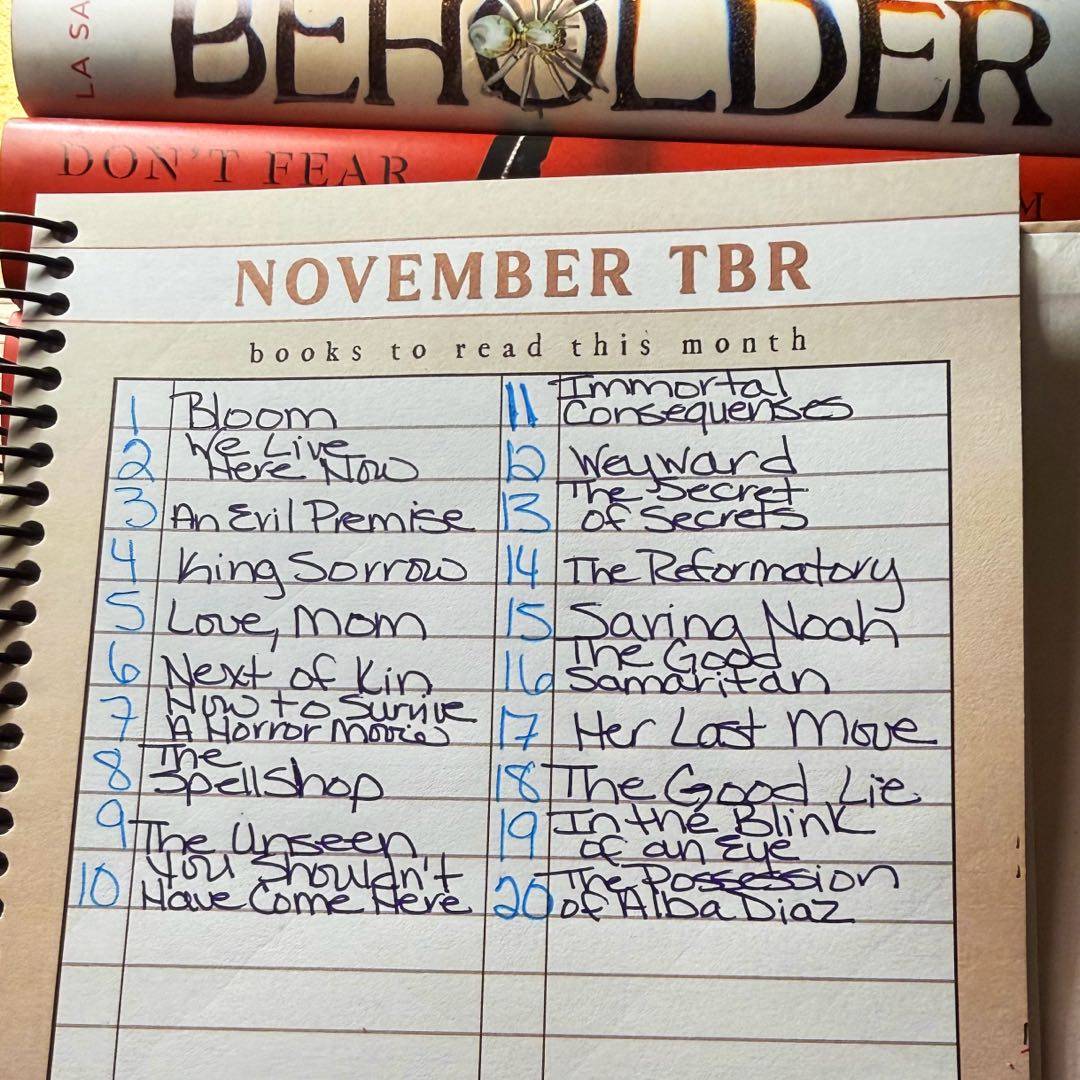 LA SA
BEHOLDER
DON'T FEAR
M
NOVEMBER TBR
books to read this month
1 Bloom
2 We Live
Here Now
3 An Evil Premise
4 King Sorrow
5 Love, Mom
6 Next of Kin
7 How to Survive
A Horror Movie
8 The
Spellshop
9 The Unseen
10 You Shouldn't
Have Come Here
11 Immortal
Consequenses
12 Weyward
13 The Secret
of Secrets
14 The Reformatory
15 Saving Noah
16 The Good
Samaritan
17 Her Last Move
18 The Good Lie
19 In the Blink
of an Eye
20 The Possession
of Alba Diaz